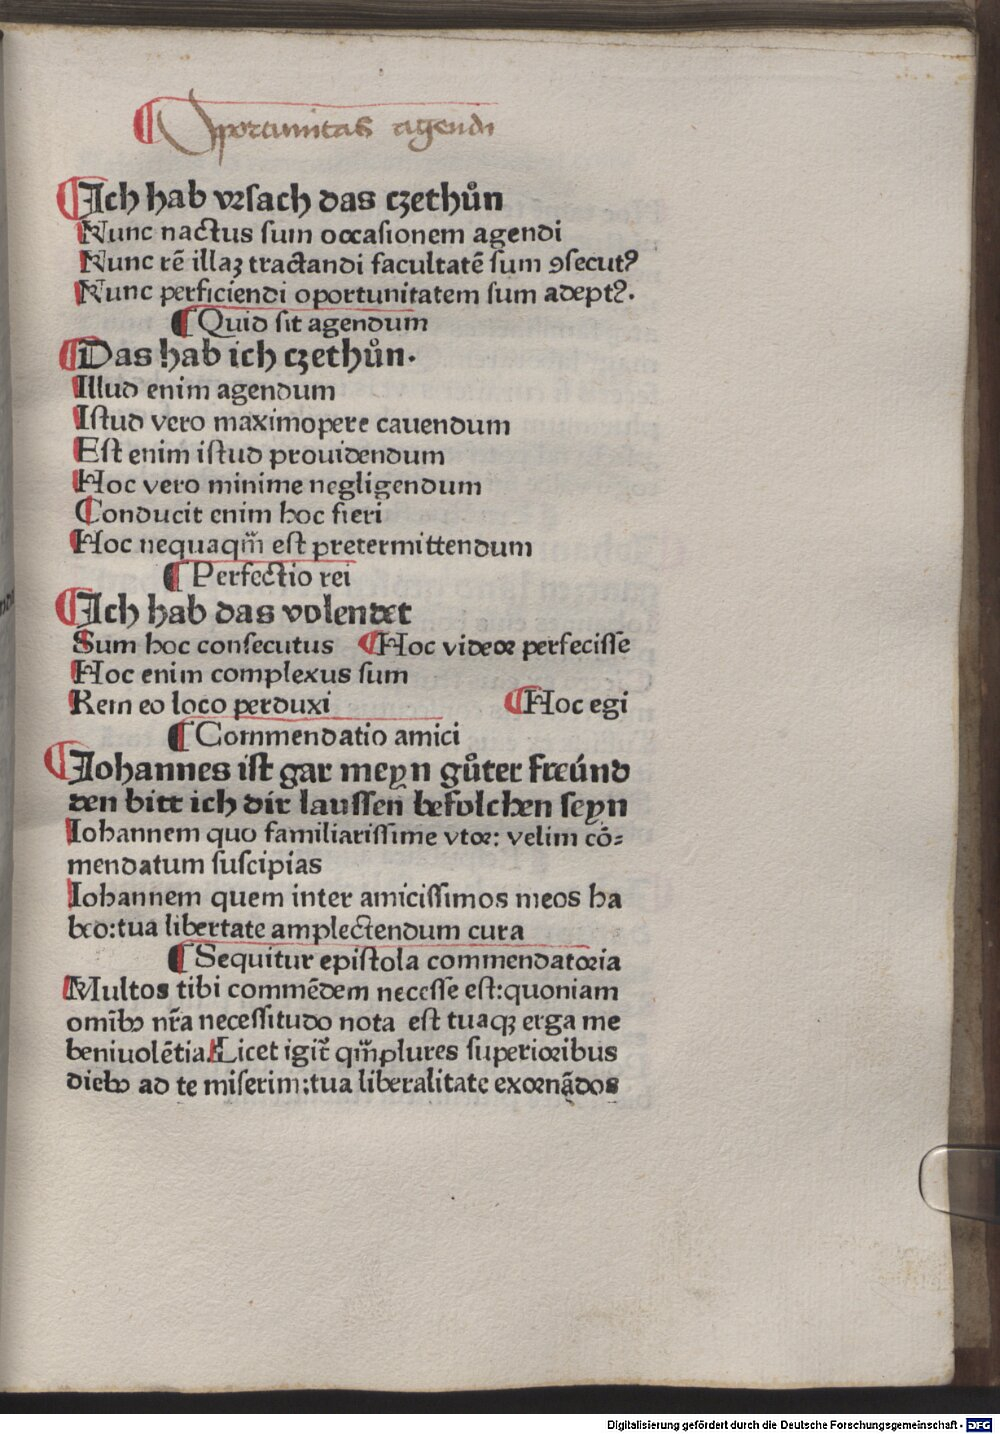 Oportunitas agendi
¶ Ich hab vrsach das czethůn
Nunc nactus sum occasionem agendi
Nunc rē illaꝫ tractandi facultatē sum ꝯsecutꝰ
Nunc perficiendi oportunitatem sum adeptꝰ.
¶ Quid sit agendum
¶ Das hab ich czethůn.
Illud enim agendum
Istud vero maximopere cauendum
Est enim istud prouidendum
Hoc vero minime negligendum
Conducit enim hoc fieri
Hoc nequaqm̄ est pretermittendum
¶ Perfectio rei
¶ Ich hab das volendet
Sum hoc consecutus ¶ Hoc videor perfecisse
Hoc enim complexus sum
Rem eo loco perduxi ¶ Hoc egi
¶ Commendatio amici
¶ Iohannes ist gar meyn gůter freúnd
den bitt ich dir laussen befolchen seyn
Iohannem quo familiarissime vtor: velim cō⸗
mendatum suscipias
Iohannem quem inter amicissimos meos ha
beo: tua libertate amplectendum cura
¶ Sequitur epistola commendatoria
Multos tibi commēdem necesse est: quoniam
omībꝰ nr̄a necessitudo nota est tuaqꝫ erga me
beniuolētia. Licet igit̄ qm̄plures superioribus
diebꝰ ad te miserim: tua liberalitate exornādos
Digitalisierung gefördert durch die Deutsche Forschungsgemeinschaft - DFG